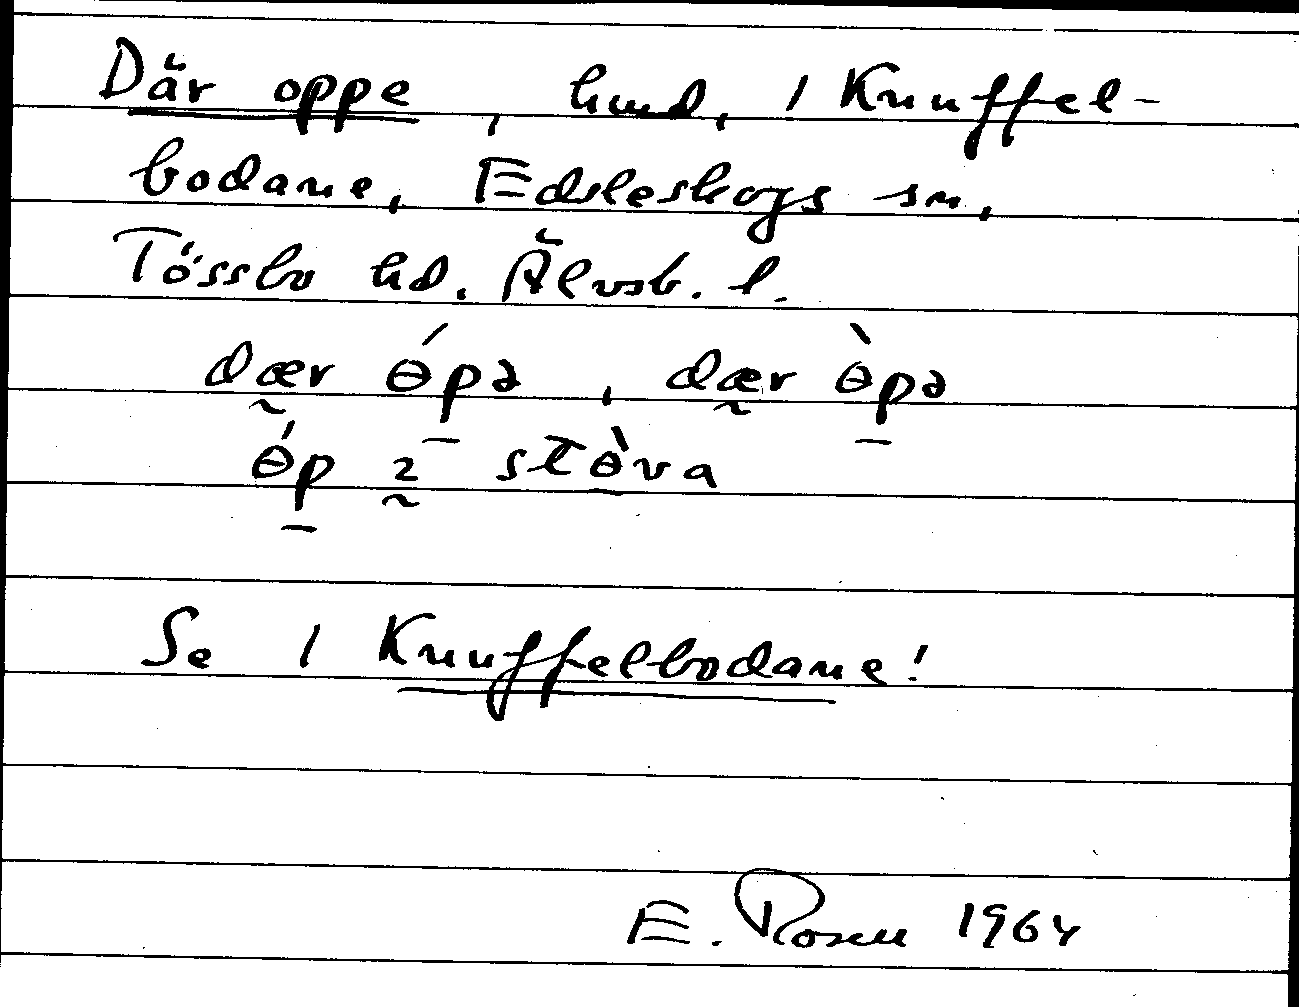 Där oppe, hmd, i Knuffel-
bodane, Edsleskogs sn,
Tössbo hd. Älvsb. l.
dær ɵ́pə, dær ɵ̀pə
ɵ́p ɪ stɵ̀va
Se i Knuffelbodane!
E. Rosen 1964